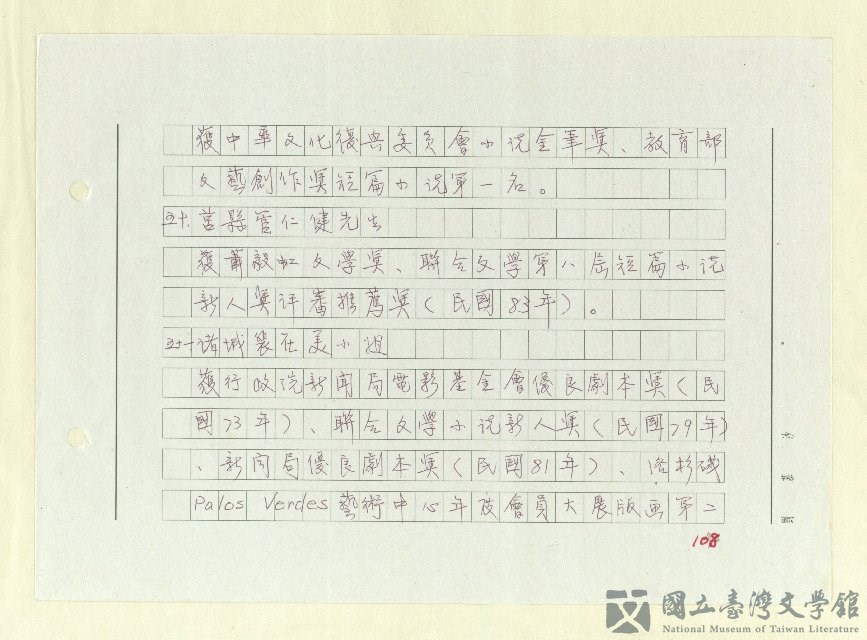 獲中華文化復興委員會小说金筆奖、教育部
文藝創作奖短篇小说第一名。
五十.莒縣管仁健先生
獲蕭毅虹文學奖、聯合文學第八屆短篇小说
新人奖评審推薦奖(民國83年)。
五十一諸城裴在美小姐
獲行政院新闻局電影基金會優良劇本奖(民
國73年)、聯合文學小说新人奖(民國79年)
、新闻局優良劇本奖(民國81年)、洛杉磯
Palos Verdes藝術中心年度會員大展版画第二
108
國立臺灣文學館
National Museum of Taiwan Literature